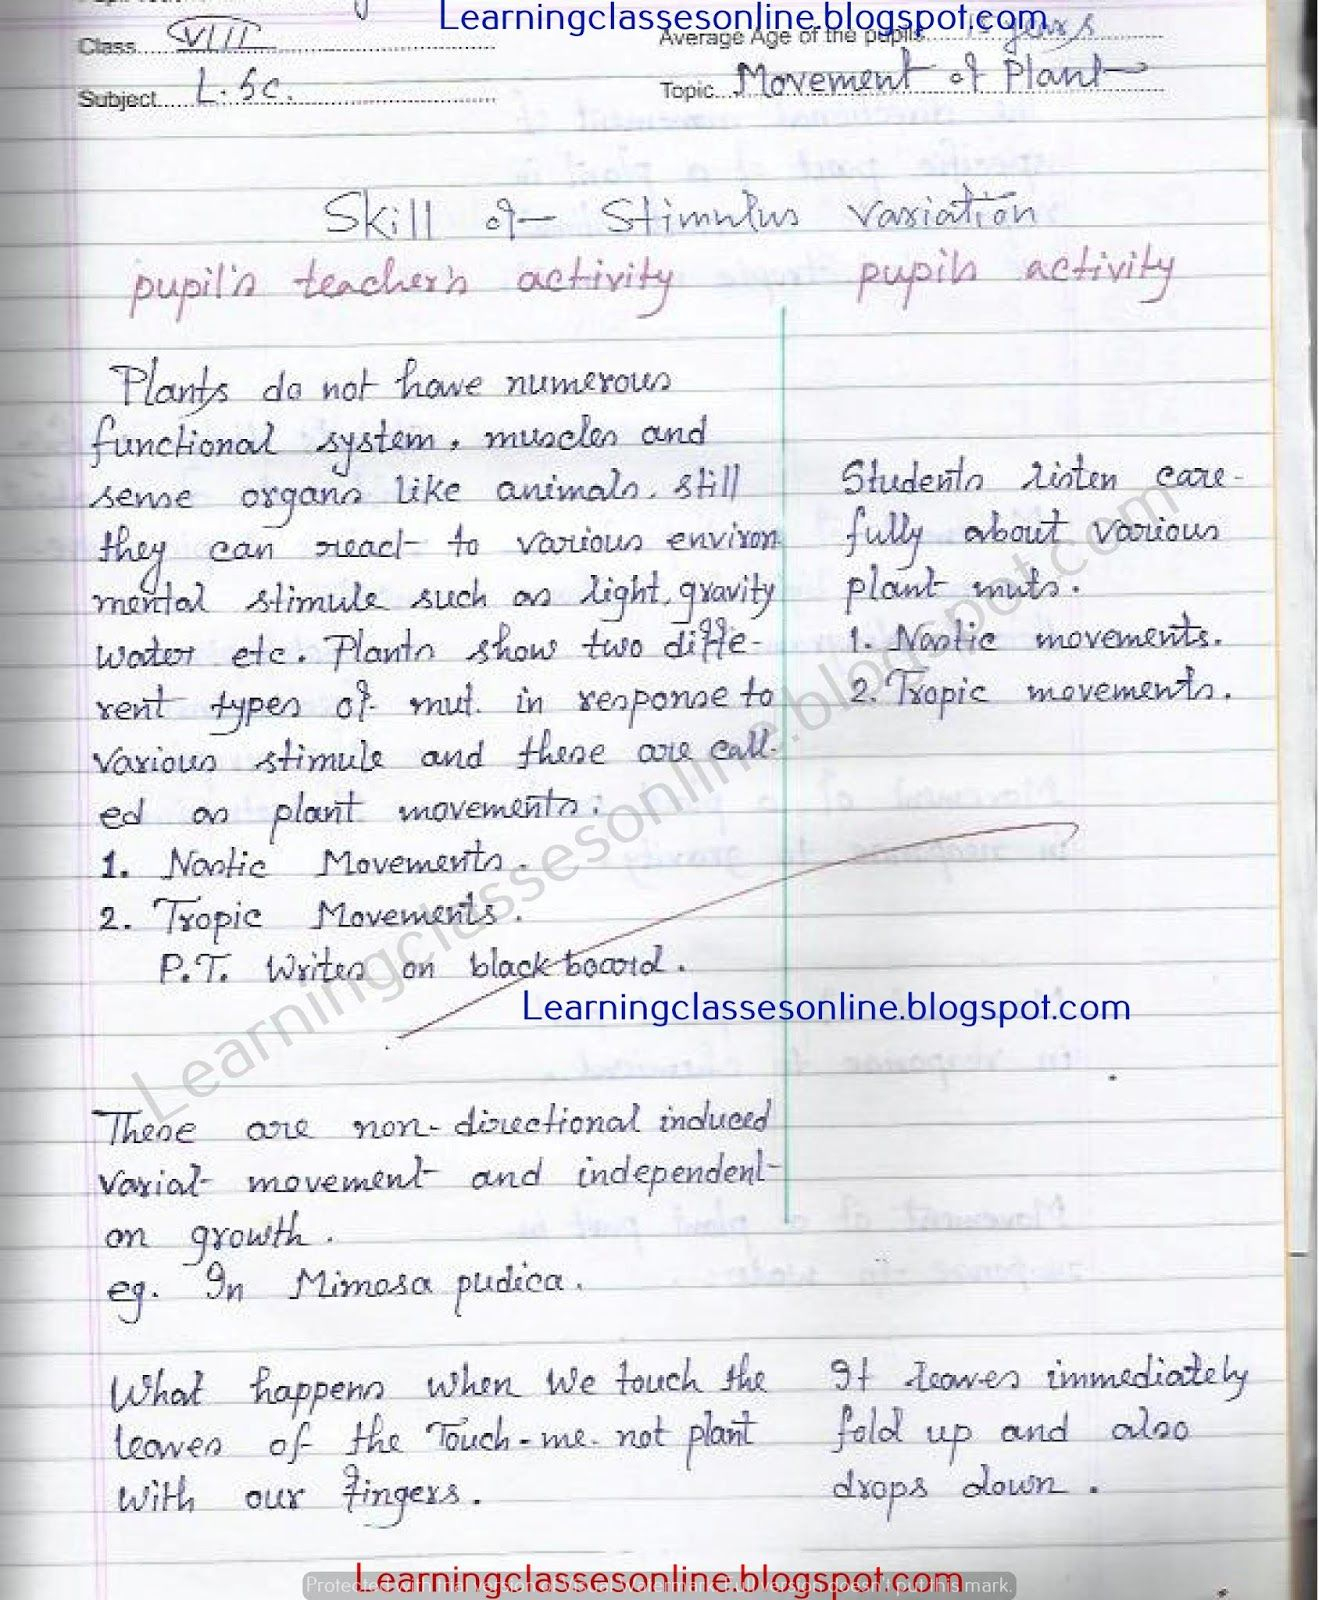 Learningclassesonline.blogspot.com
Class VIII
Average Age of the pupils years
Subject L.Sc.
Topic Movement of Plant
Skill of Stimulus Variation
pupil's teacher's activity
pupils activity
Plants do not have numerous
functional system, muscles and
sense organs like animals. still
they can react to various environ
mental stimule such as light, gravity
water etc. Plants show two diffe-
rent types of mut. in response to
various stimule and these are call-
ed as plant movements:
1. Nastic Movements.
2. Tropic Movements.
P.T. Writes on black board.
Students listen care-
fully about various
plant muts.
1. Nastic movements.
2. Tropic movements.
Learningclassesonline.blogspot.com
Learningclassesonline.blogspot.com
These are non-directional induced
varial movement and independent
on growth.
eg. In Mimosa pudica.
What happens when we touch the
leaves of the Touch-me-not plant
with our fingers.
It leaves immediately
fold up and also
drops down.
Learningclassesonline.blogspot.com
Protected with trial version of Visual Watermark. Full version doesn't put this mark.